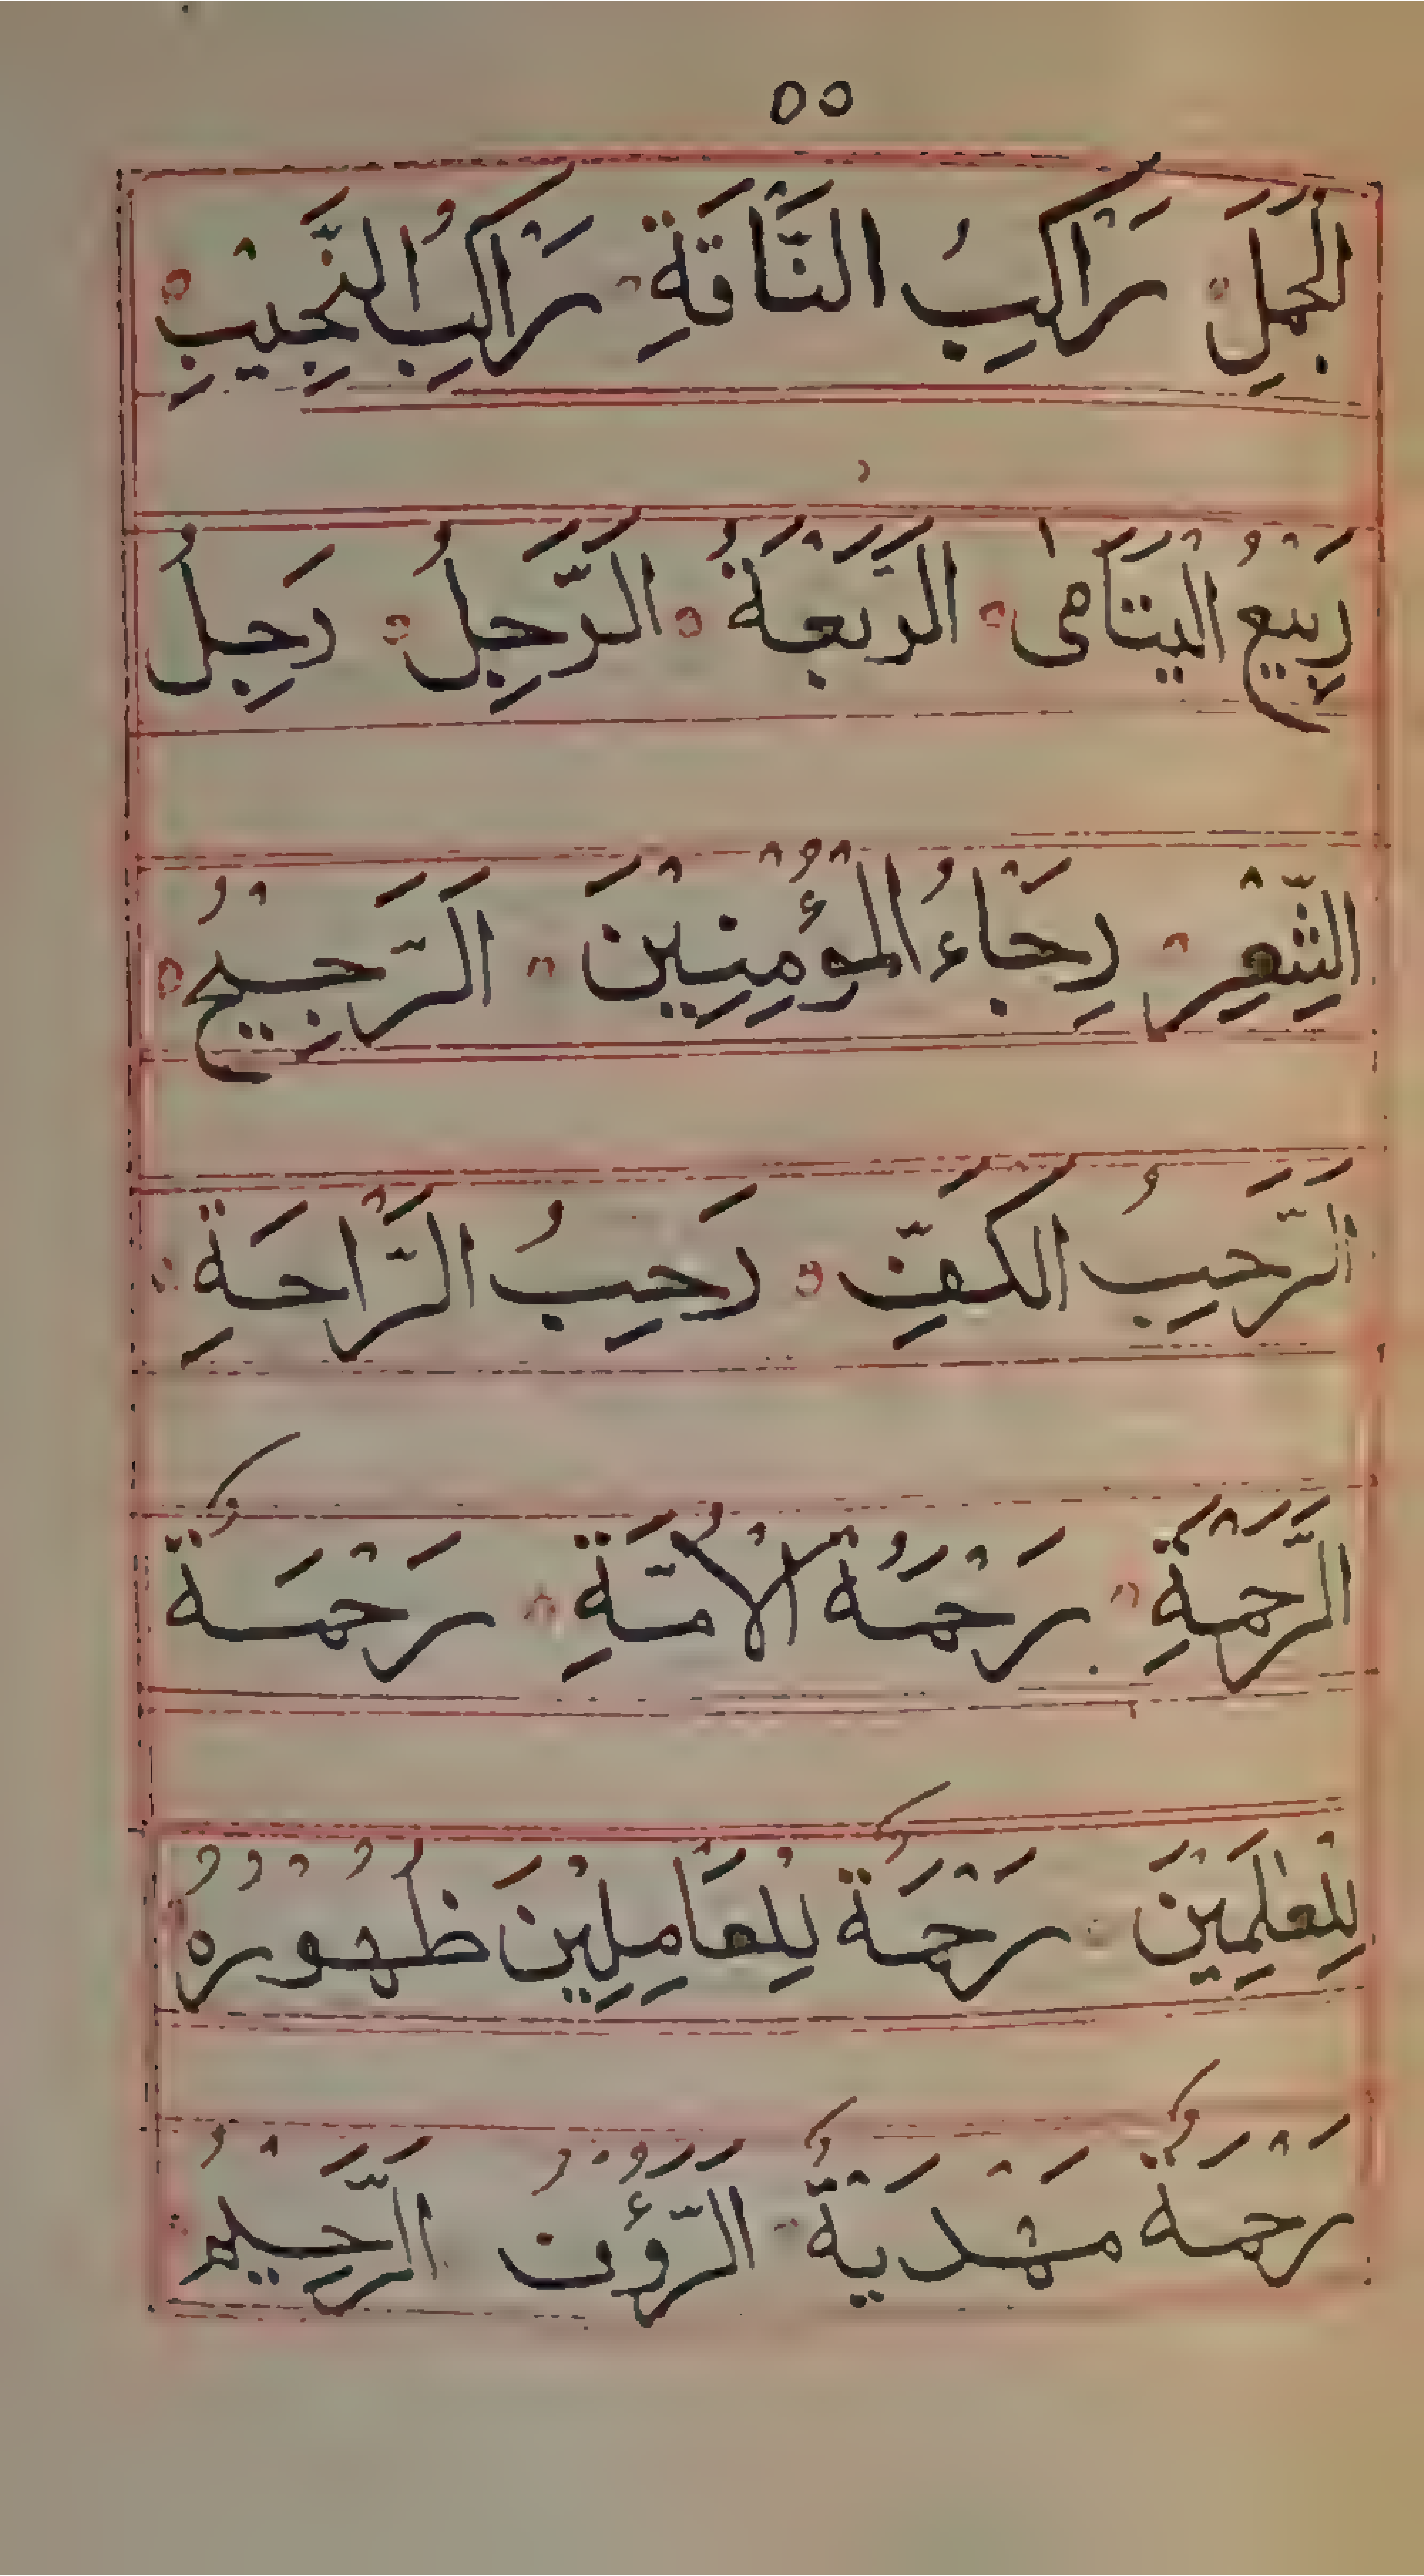 ٥٥
الجَمَلِ رَاكِبُ النَّاقَةِ رَاكِبُ النَّجِيْبِ
رَبِيْعُ اليَتَامَى الرَّبْعَةُ الرَّجِلُ رَجِلُ
الشَّعْرِ رَجَاءُ المُؤْمِنِيْنَ الرَّجِيْحُ
الرَّحِبُ الكَفِّ رَحِبُ الرَّاحَةِ
الرَّحْمَةِ رَحْمَةُ الأُمَّةِ رَحْمَةٌ
لِلْعٰلَمِيْنَ رَحْمَةٌ لِلْعَامِلِيْنَ ظُهُوْرُهُ
رَحْمَةٌ مَهْدِيَةٌ الرَّؤُوْفُ الرَّحِيْمُ